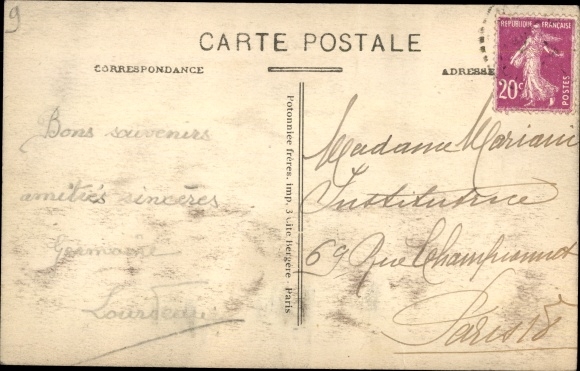 9
CARTE POSTALE
CORRESPONDANCE
ADRESSE
REPUBLIQUE FRANÇAISE
POSTES
20c
Bons souvenirs
amitiés sincères
Germaine
Potonniée frères, imp. 3 Cité Bergère Paris
Madame Mariani
Institutrice
69 Rue Championnet
Paris 18e